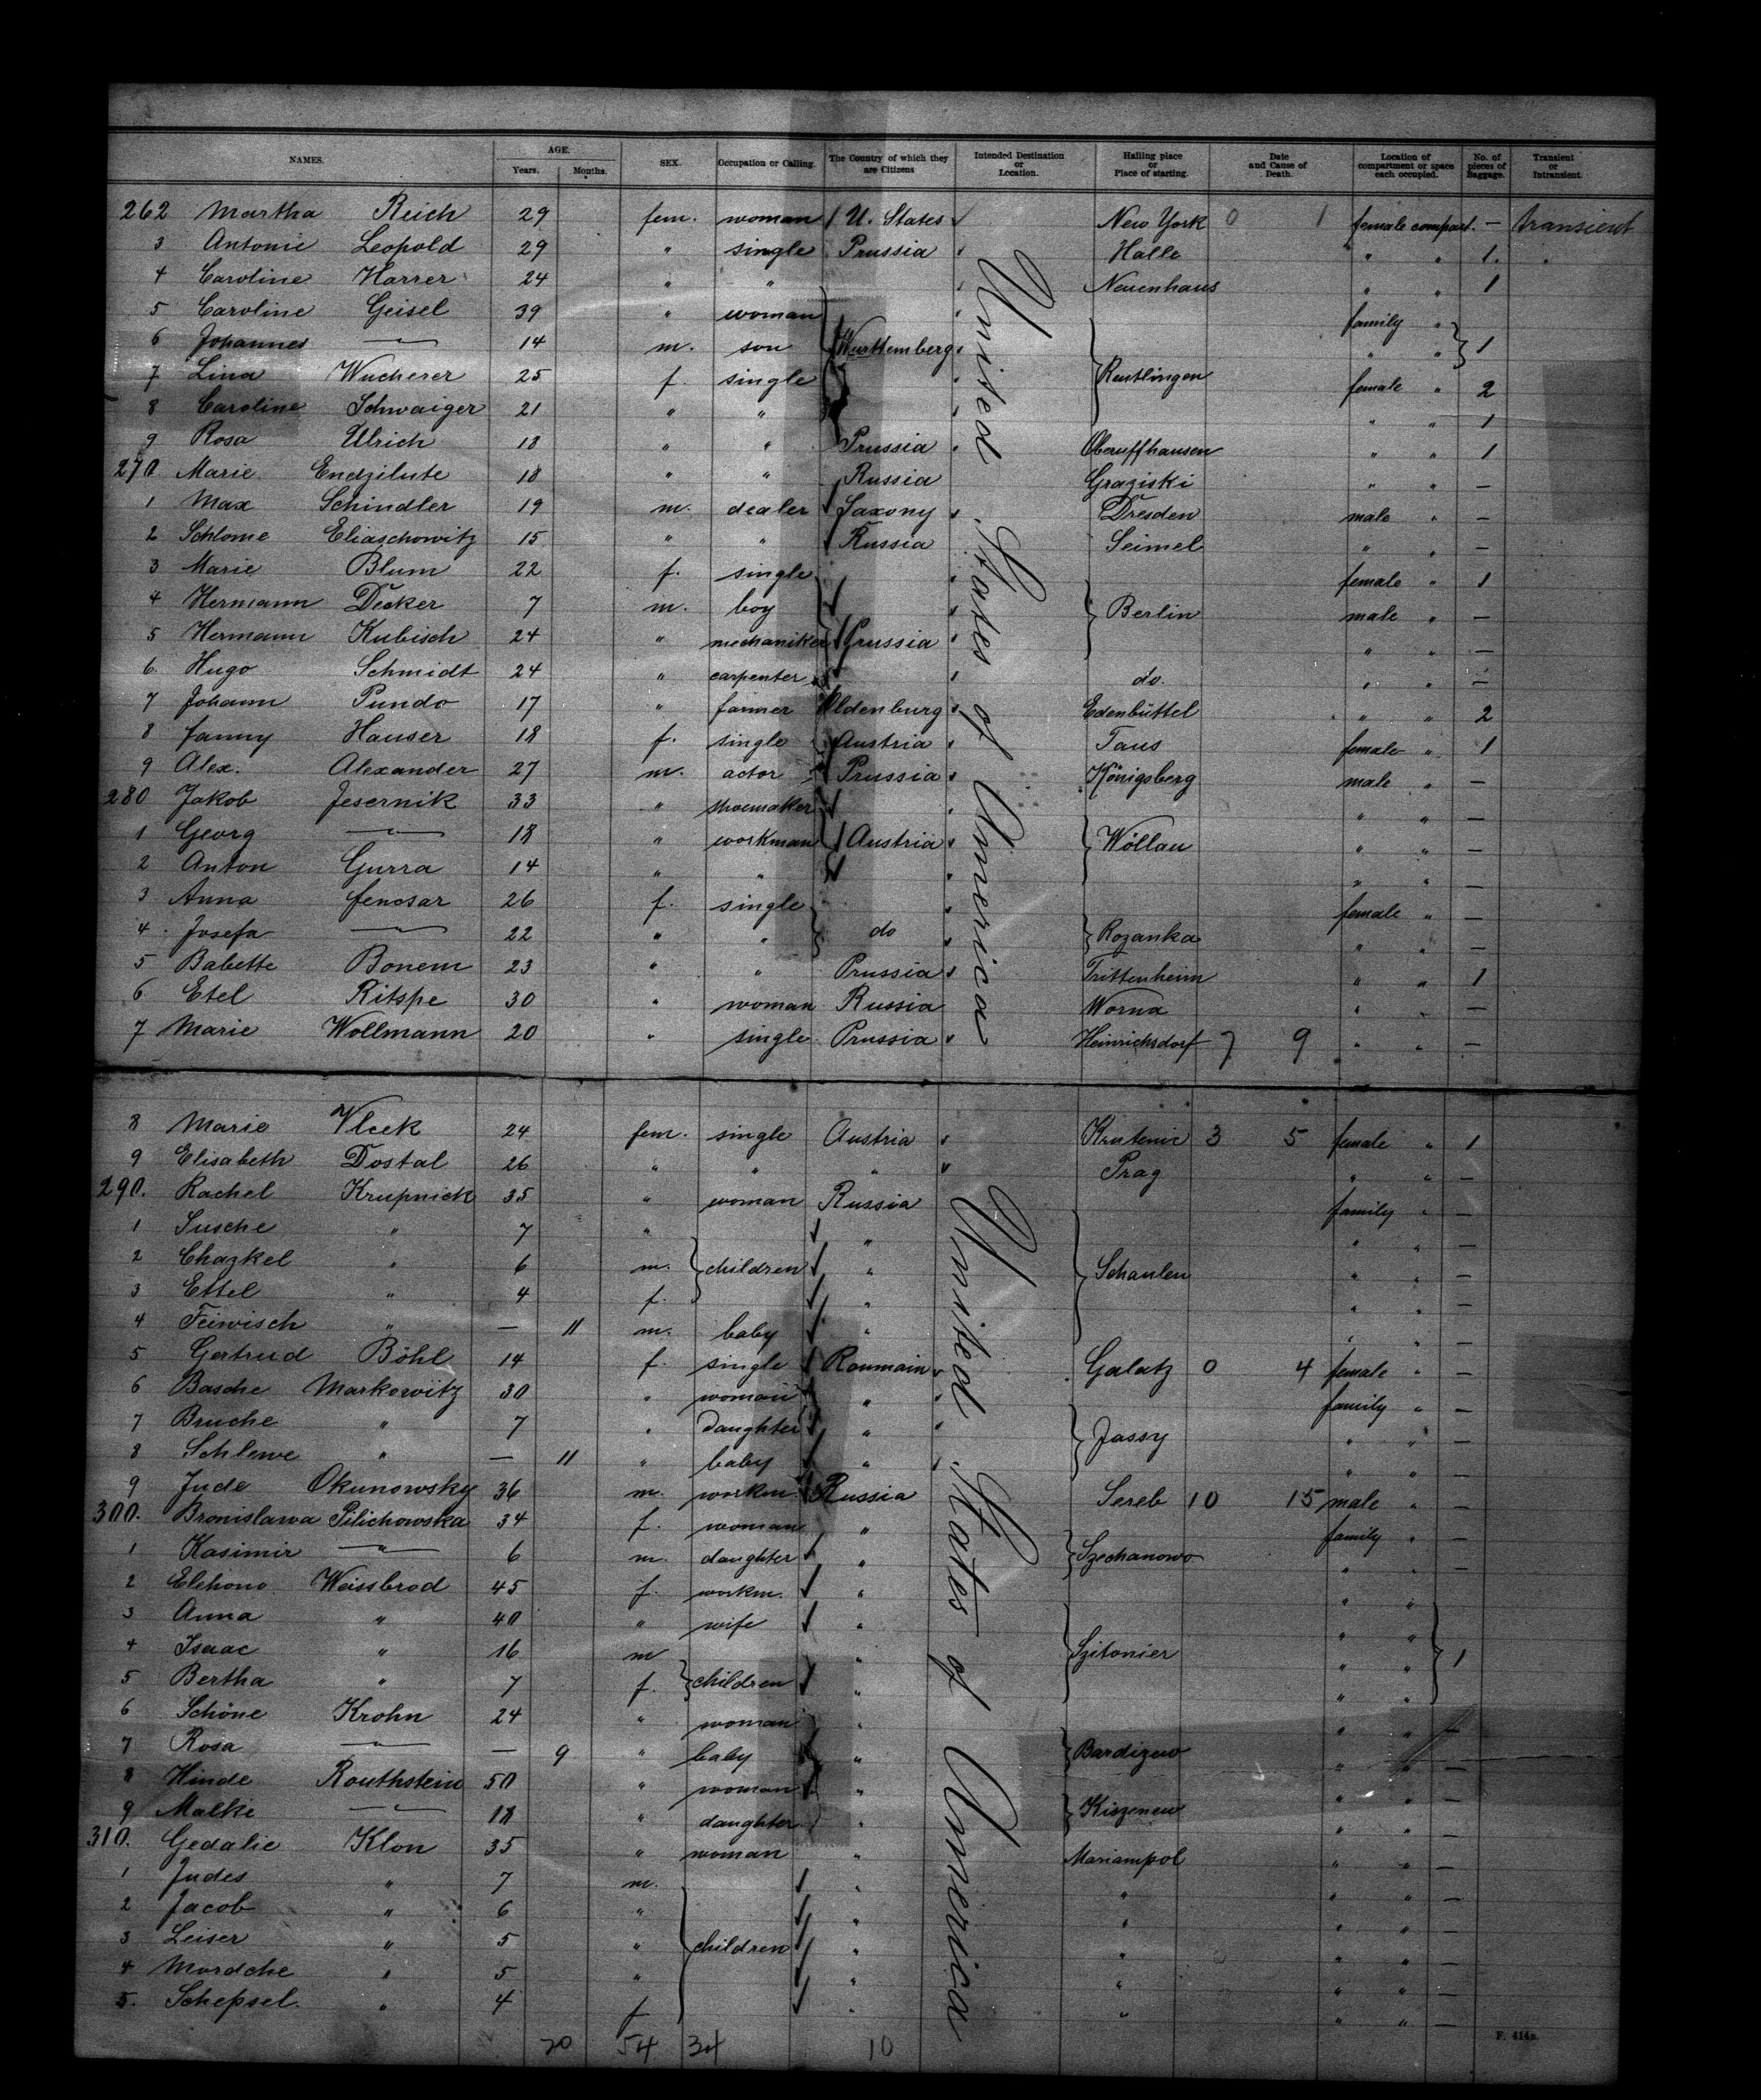 NAMES. AGE. Years. Months. SEX. Occupation or Calling. The Country of which they are Citizens Intended Destination or Location. Hailing place or Place of starting. Date and Cause of Death. Location of compartment or space each occupied. No. of pieces of Baggage. Transient or Intransient.
United States of America
262 Martha Reich 29 fem. woman U. States New York 0 1 female compart. — transient
3 Antonie Leopold 29 " single Prussia Halle " " 1. "
4 Caroline Harrer 24 " " Neuenhaus " " 1
5 Caroline Geisel 39 " woman family "
6 Johannes —"— 14 m. son Württemberg " " 1
7 Lina Wucherer 25 f. single Reutlingen female " 2
8 Caroline Schwaiger 21 " " " " 1
9 Rosa Ulrich 18 " " Prussia " " 1
270 Marie Endzilute 18 " " Russia Graziski " " —
1 Max Schindler 19 m. dealer Saxony Dresden male " —
2 Schlome Eliaschowitz 15 " " Russia Seimel " " —
3 Marie Blum 22 f. single female " 1
4 Hermann Decker 7 m. boy Berlin male " —
5 Hermann Kubisch 24 " mechaniker Prussia " " —
6. Hugo Schmidt 24 " carpenter do. " " —
7 Johann Pundo 17 " farmer Oldenburg Edenbüttel " " 2
8 Fanny Hauser 18 f. single Austria Taus female " 1
9 Alex. Alexander 27 m. actor Prussia Königsberg male " —
280 Jakob Jesernik 33 " shoemaker " " —
1 Georg —"— 18 " workman Austria Wöllau " " —
2 Anton Gurra 14 " " " " —
3 Anna Fencsar 26 f. single female " —
4 Josefa —"— 22 " " do Rozanka " " —
5 Babette Bonem 23 " " Prussia Trittenheim " " 1
6 Etel Ritspe 30 " woman Russia Worna " " —
7 Marie Wollmann 20 " single Prussia Heinrichsdorf 7 9 " " —
United States of America
8 Marie Vlcek 24 fem. single Austria Krutenic 3 5 female " 1
9 Elisabeth Dostal 26 " " " Prag " " —
290. Rachel Krupnick 35 " woman Russia family " —
1 Susche " 7 " " " " —
2 Chazkel " 6 m. children " Schaulen " " —
3 Ettel " 4 f. " " " —
4 Feiwisch " — 11 m. baby " " " —
5 Gertrud Böhl 14 f. single Roumain Galatz 0 4 female " —
6 Basche Markowitz 30 " woman " family " —
7 Bruche " 7 " daughter " Jassy " " —
8 Schlewe " — 11 " baby " " " —
9 Jude Okunowsky 36 m. workm. Russia Sereb 10 15 male " —
300. Bronislawa Pilichowska 34 f. woman " family " —
1 Kasimir —"— 6 m. daughter " Szechanowo " " —
2 Elchono Weissbrod 45 f. workm. " " "
3 Anna " 40 " wife " " "
4 Isaac " 16 m " Szitonier " " 1
5 Bertha " 7 f. children " " "
6 Schöne Krohn 24 " woman " " " —
7 Rosa —"— — 9 " baby " Bardizew " " —
8 Hinde Routhstein 50 " woman " " " —
9 Malke —"— 18 " daughter " Kiszenew " " —
310. Gedalie Klon 35 " woman " Mariampol " " —
1 Judes " 7 m. " " " " —
2 Jacob " 6 " " " " " —
3 Leiser " 5 " children " " " " —
4 Mordche " 5 " " " " " —
5. Schepsel " 4 f " " " " —
20 54 34 10
F. 414a.